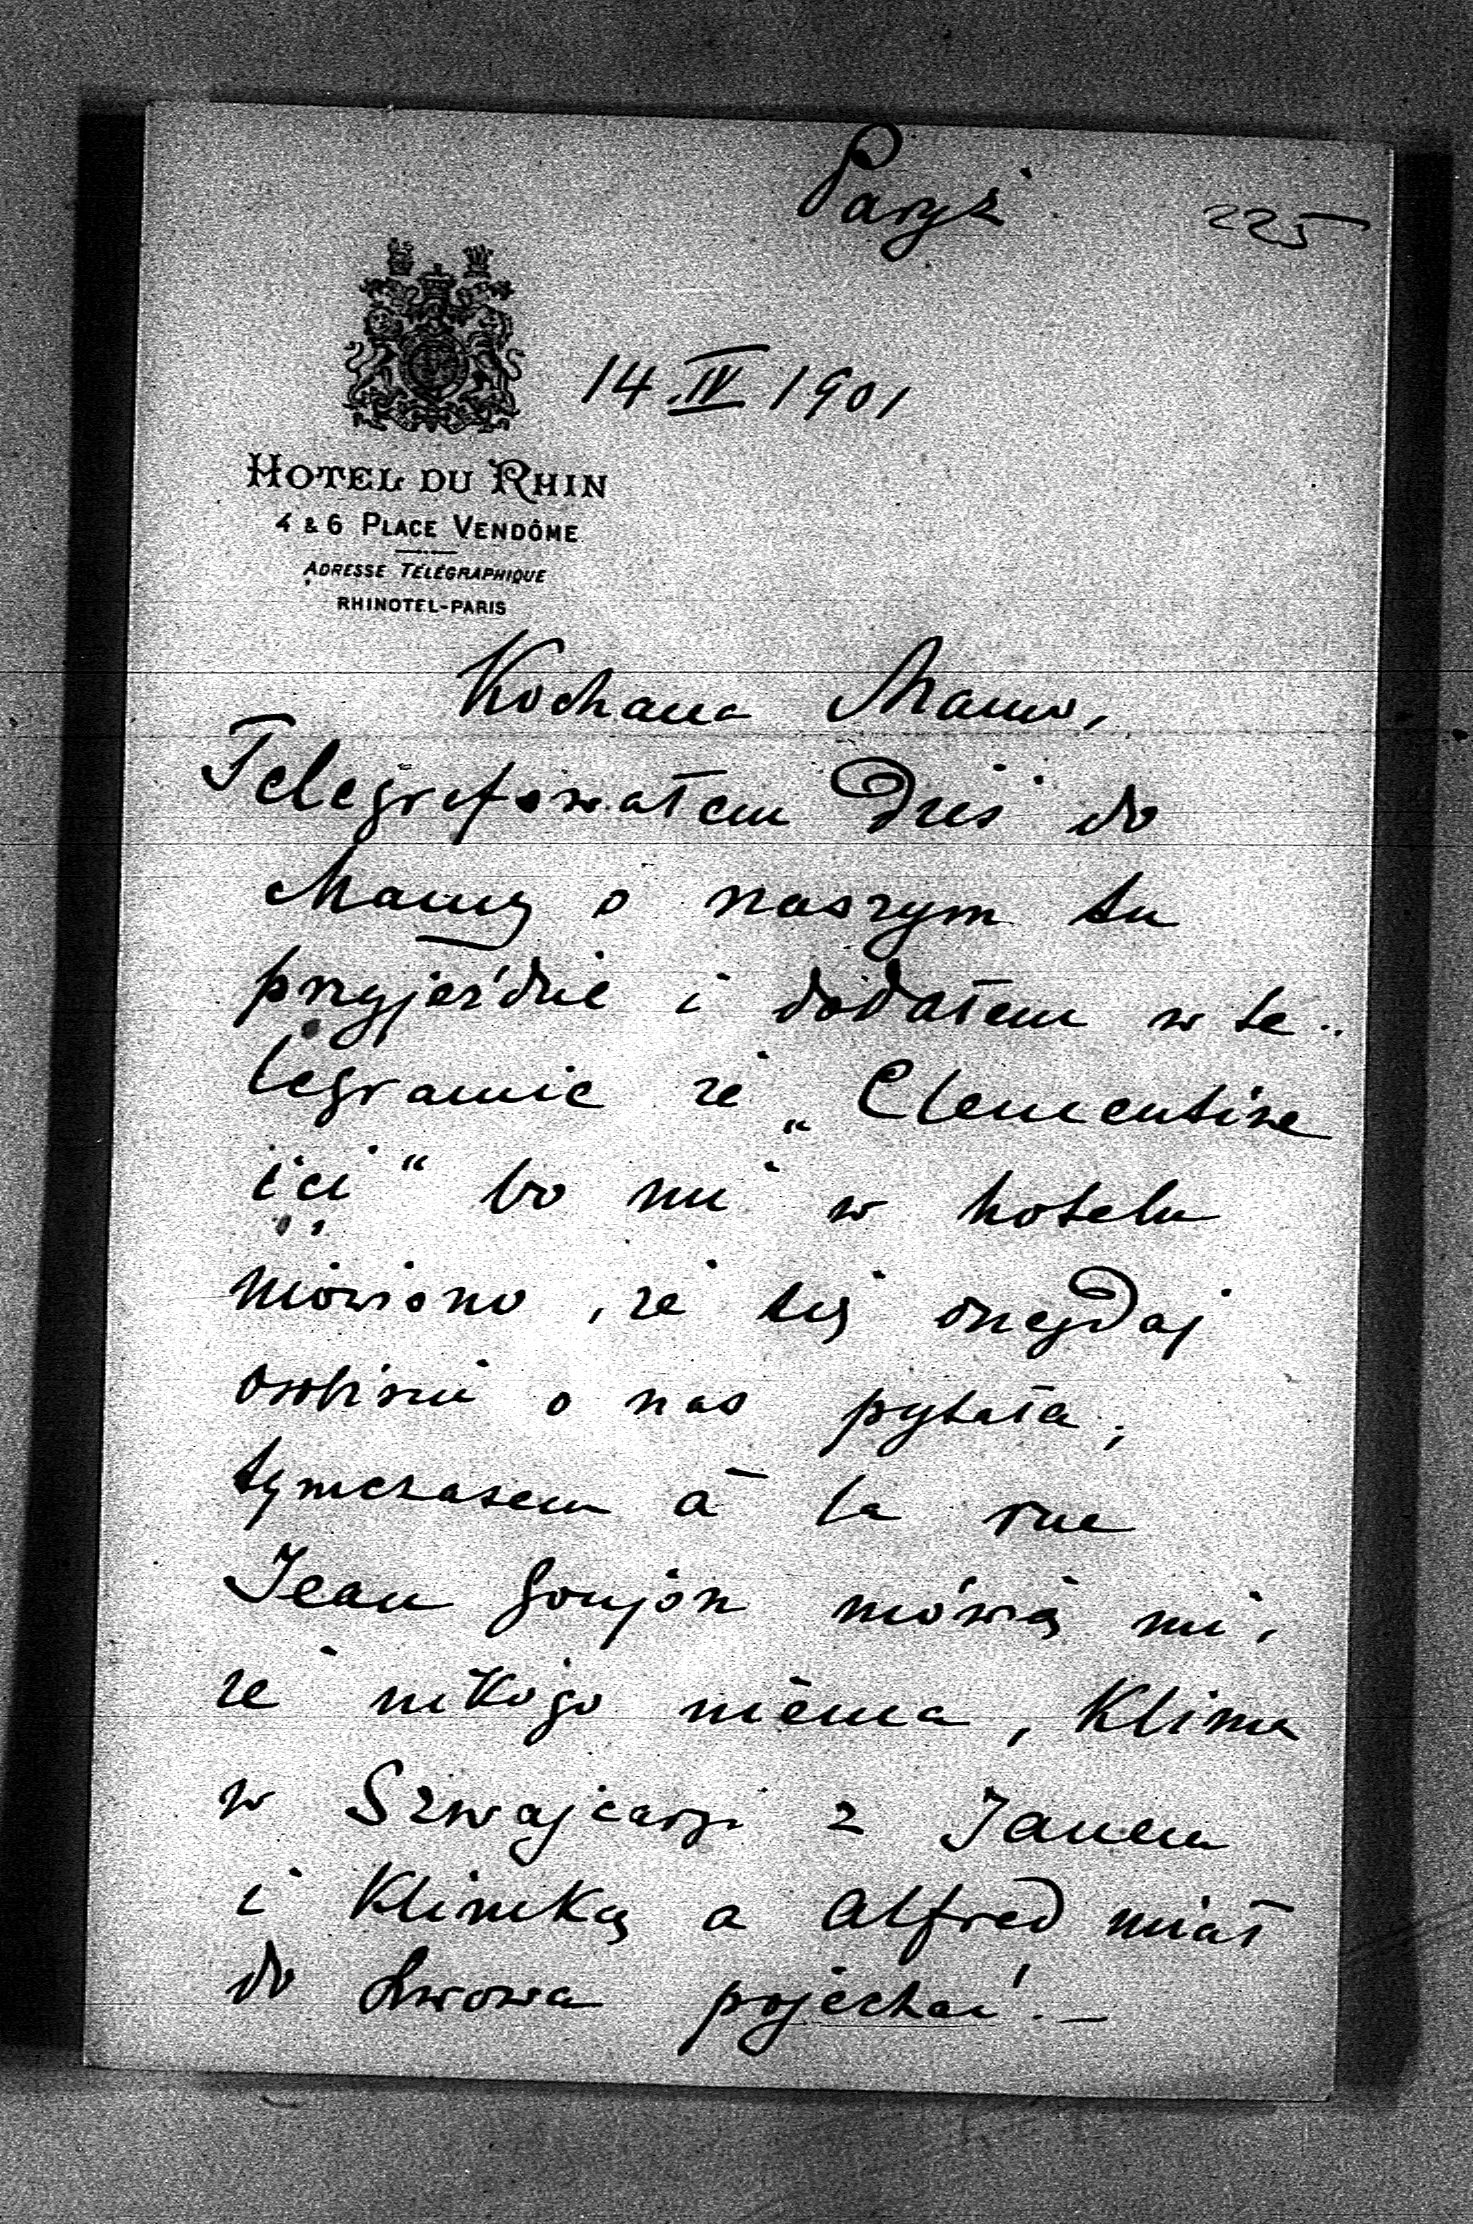 Paryż
225
14.IV 1901
HOTEL DU RHIN
4 & 6 PLACE VENDÔME
ADRESSE TÉLÉGRAPHIQUE
RHINOTEL-PARIS
Kochana Mamo,
Telegrafowałem dziś do
Mamy o naszym tu
przyjeździe i dodałem w te-
legramie że „Clementine
ici“ bo mi w hotelu
mówiono, że się onegdaj
osobiście o nas pytała,
tymczasem à la rue
Jean Goujon mówią mi,
że nikogo niema, Klima
w Szwajcarji z Janem
i Klimką a Alfred miał
do Lwowa pojechać. –